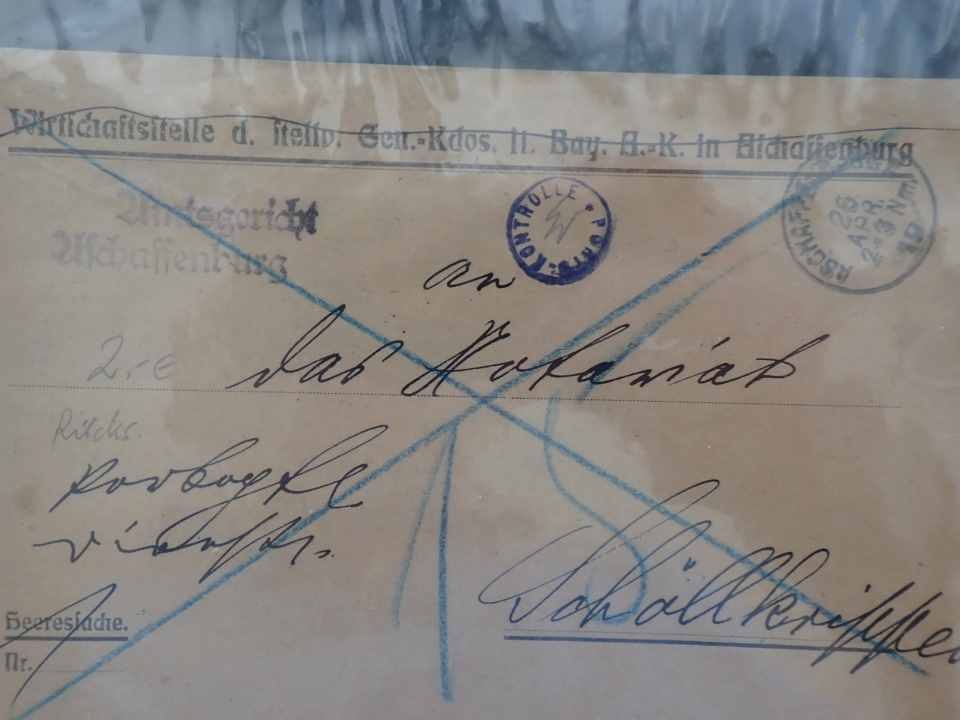 Wirtschaftsstelle d. stellv. Gen.-Kdos. II. Bay. A.-K. in Aschaffenburg
Amtsgericht
Aschaffenburg
PORTO-KONTROLLE *
ASCHAFF
26
APR.
2-3 Nm
19
an
das Notariat
2.-€
Rücks.
Schöllkrippen
Heeressache.
Nr.